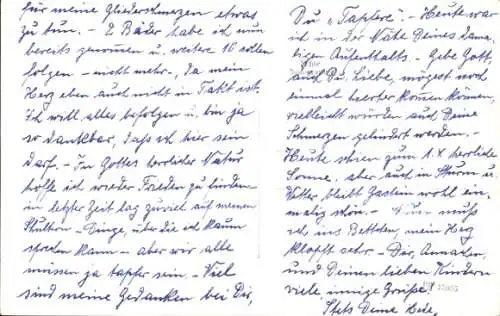 für meine Gliederschmerzen etwas
zu tun. - 2 Bäder habe ich nun
bereits genommen u. weitere 10 sollen
folgen - nicht mehr -, da mein
Herz eben auch nicht in Takt ist.
Ich will alles befolgen u. bin ja
so dankbar, daß ich hier sein
darf. - In Gottes herrlicher Natur
hoffe ich wieder Frieden zu finden
in letzter Zeit lag zuviel auf meinen
Schultern - Dinge, über die ich kaum
sprechen kann - aber wir alle
müssen ja tapfer sein. - Viel
sind meine Gedanken bei Dir,
Du "Tapfere". - Heute war
ich in der Nähe Deines dama-
ligen Aufenthalts. - Gebe Gott,
auch Du, Liebe, mögest noch
einmal hierher kommen können,
vielleicht würden auch Deine
Schmerzen gelindert werden. -
Heute schien zum 1. x herrliche
Sonne, aber auch in Sturm u.
Wetter bleibt Gastein wohl ein-
malig schön. - Nun muß
ich ins Bettchen, mein Herz
klopft sehr. - Dir,
und Deinen lieben Kindern
viele, innige Grüße!
Stets Deine